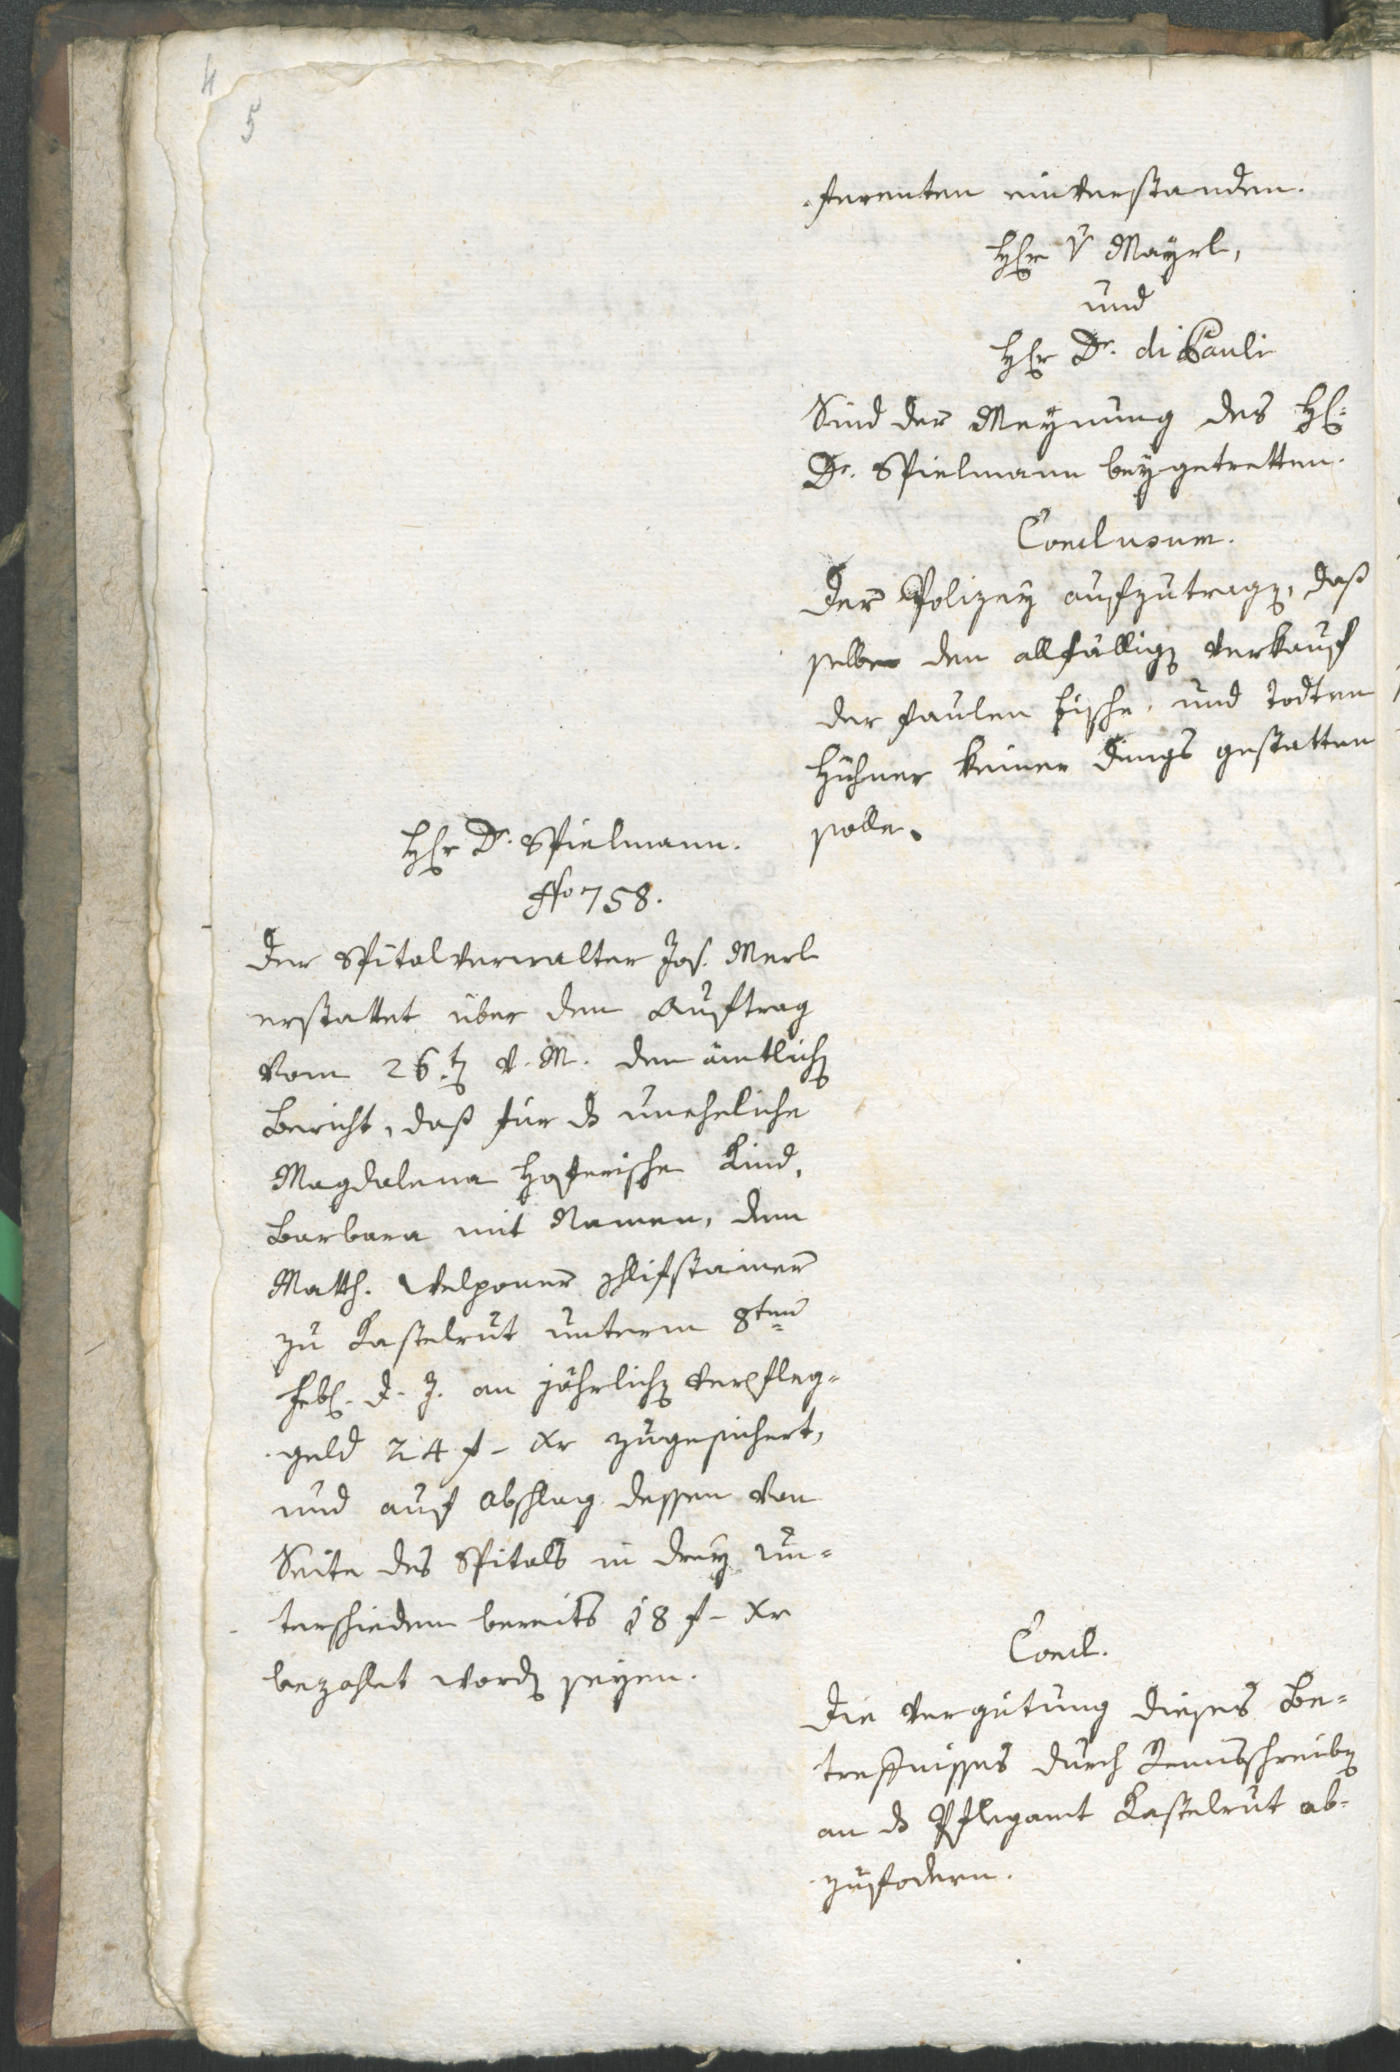 4
5
ferenten einverstanden.
Herr v Mayrl,
und
Herr Dr. di Pauli
Sind der Meynung des H:
Dr. Spielmann beygetretten.
Conclusum.
Der Polizey aufzutragen, daß
selbe den allfälligen Verkauf
der faulen Fische, und todten
Hühner keiner Dings gestatten
solle.
Herr Dr. Spielmann.
No 758.
Der Spitalverwalter Jos. Merl
erstattet über den Auftrag
vom 26.ten v. M. den ämtlichen
Bericht, daß für das uneheliche
Magdalena Hoferische Kind,
Barbara mit Namen, dem
Matth. Velponer
zu Kastelrut unterm 8ten
Feb. d. J. an jährlichen Verpfleg=
geld 24 f - Xr zugesichert,
und auf Abschlag dessen von
Seite des Spitals in drey un=
terschieden bereits 18 f - Xr
bezahlt worden seyen.
Concl.
Die Vergütung dieses Be=
treffnisses durch Kompaßschreiben
an das Pflegamt Kastelrut ab=
zufodern.